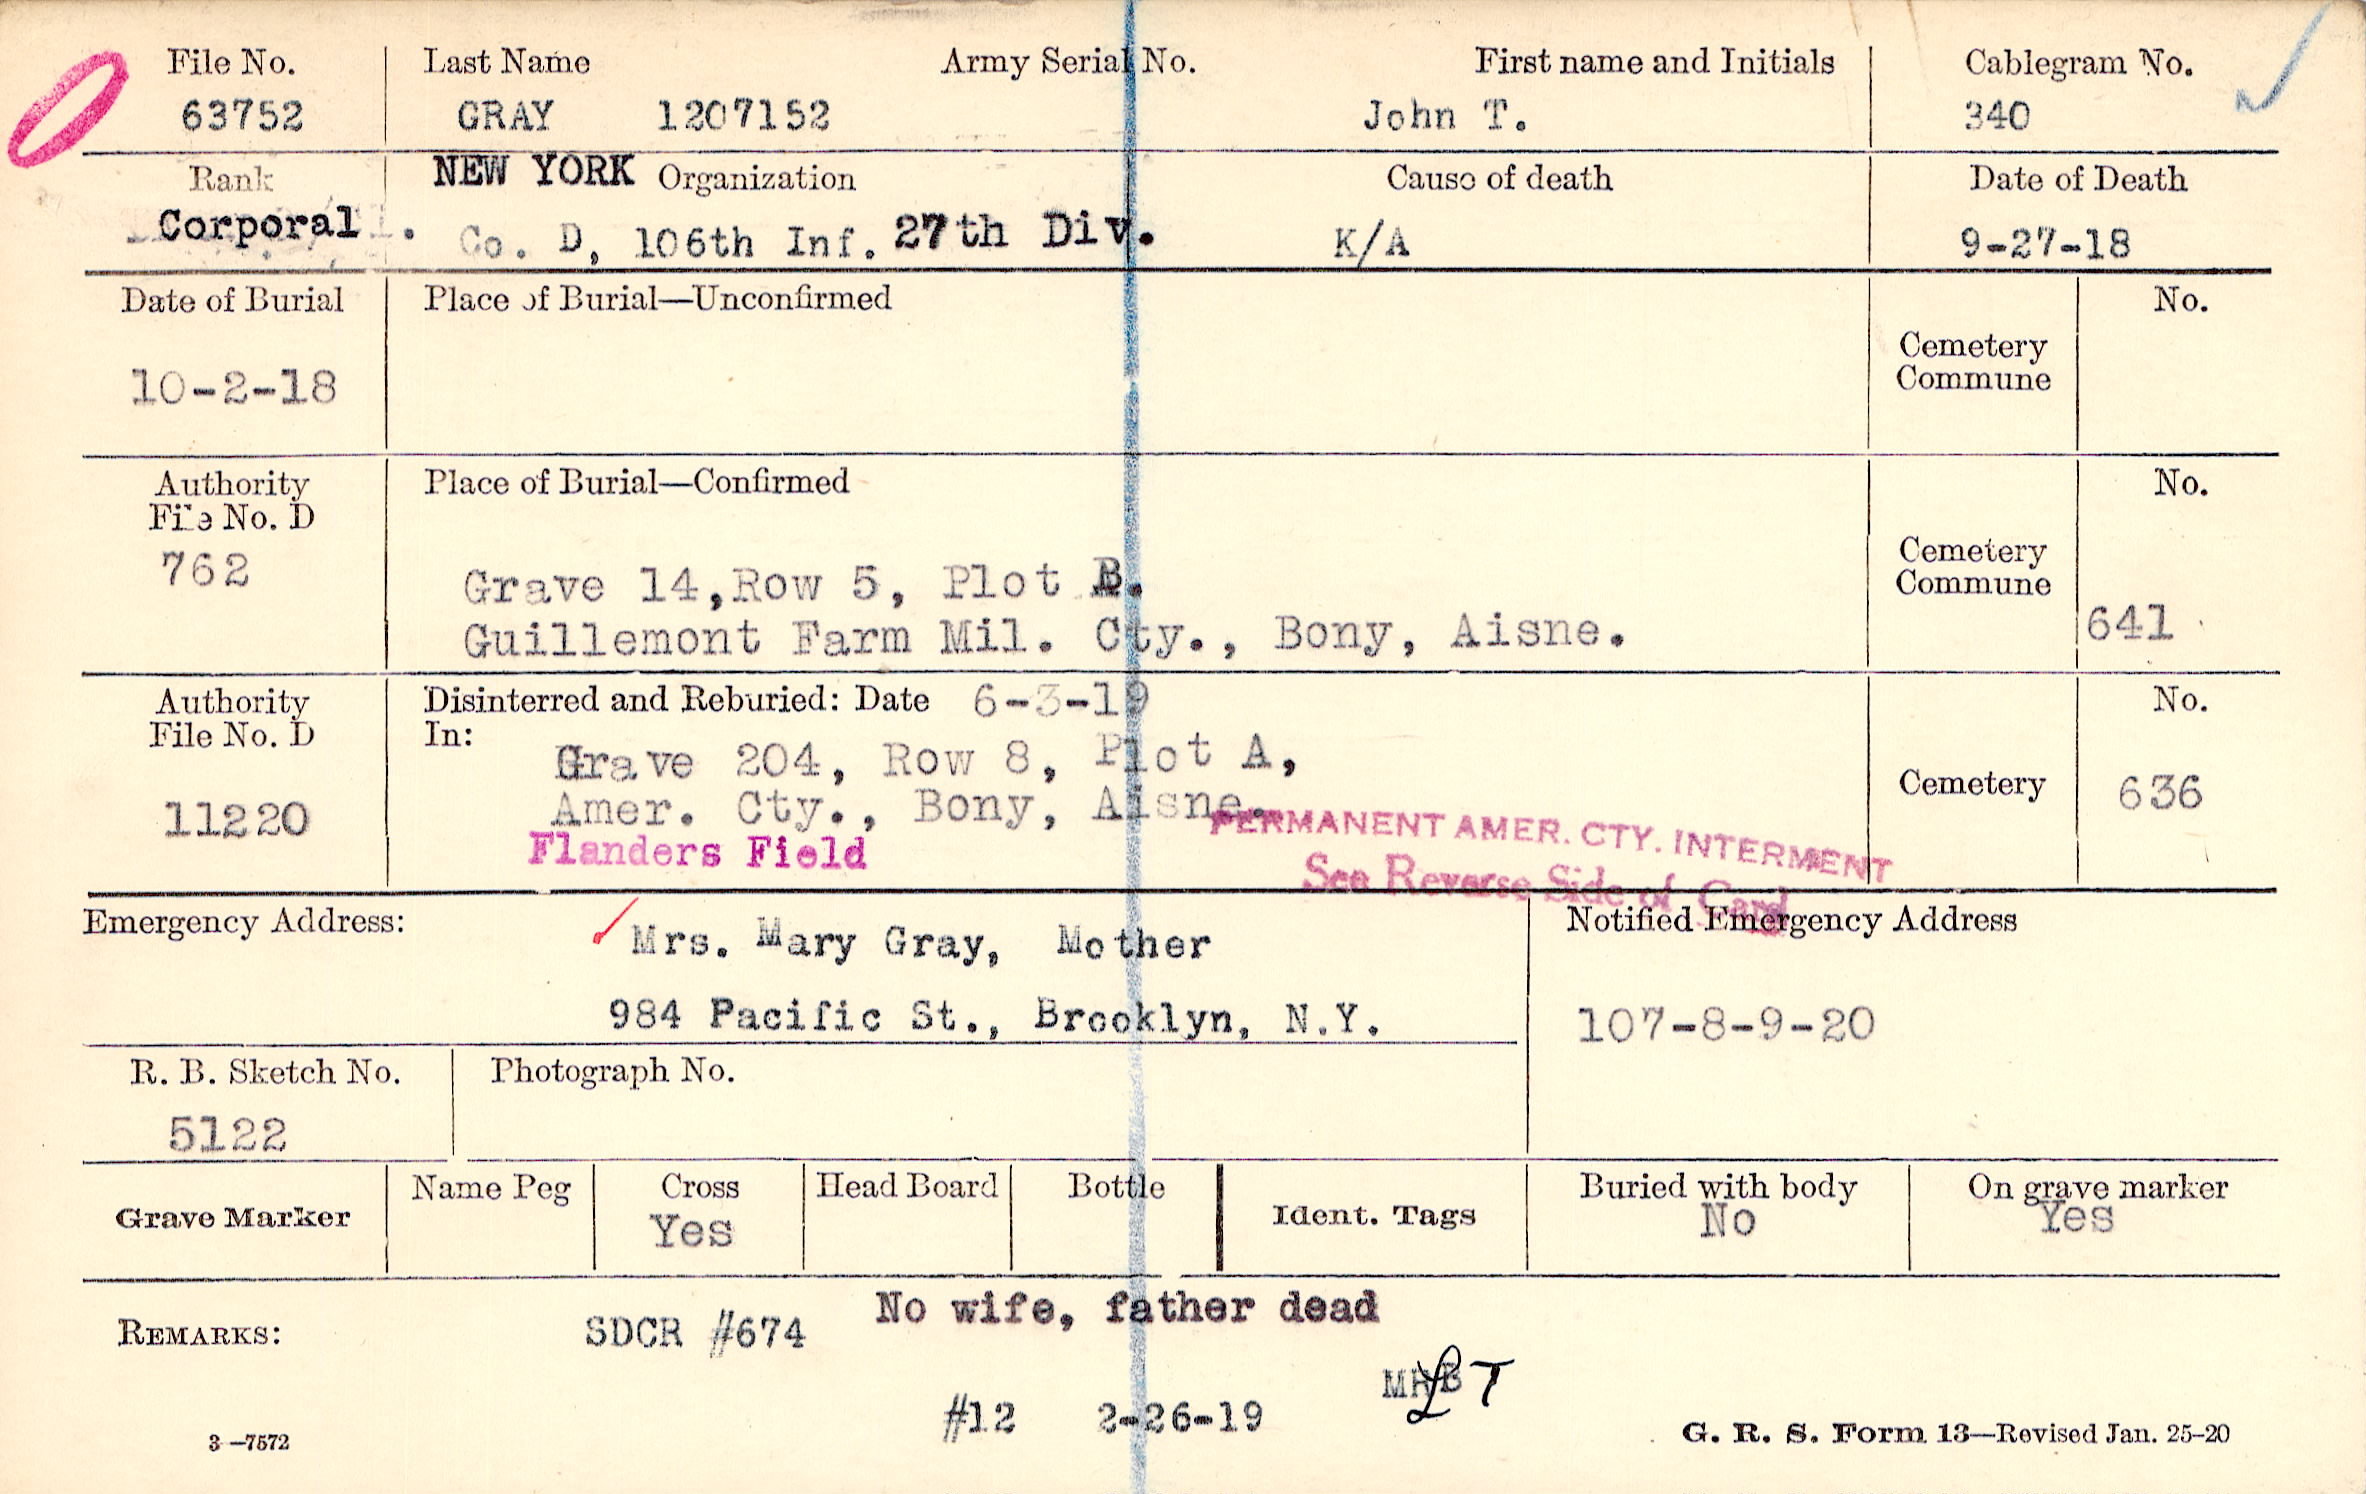 File No. Last Name Army Serial No. First name and Initials Cablegram No.
63752 GRAY 1207152 John T. 340
Rank NEW YORK Organization Cause of death Date of Death
Corporal . Co. D, 106th Inf. 27th Div. K/A 9-27-18
Date of Burial Place of Burial—Unconfirmed No.
Cemetery
Commune
10-2-18
Authority Place of Burial—Confirmed No.
File No. D
762
Cemetery
Commune
Grave 14,Row 5, Plot B.
Guillemont Farm Mil. Cty., Bony, Aisne. 641
Authority Disinterred and Reburied: Date 6-3-19 No.
File No. D In:
Grave 204, Row 8, Plot A,
11220 Amer. Cty., Bony, Aisne. Cemetery 636
Flanders Field PERMANENT AMER. CTY. INTERMENT
See Reverse Side of Card
Emergency Address: Mrs. Mary Gray, Mother Notified Emergency Address
984 Pacific St., Brooklyn, N.Y. 107-8-9-20
R. B. Sketch No. Photograph No.
5122
Grave Marker Name Peg Cross Head Board Bottle Ident. Tags Buried with body On grave marker
Yes No Yes
REMARKS: SDCR #674 No wife, father dead
#12 2-26-19
3—7572 G. R. S. Form 13—Revised Jan. 25-20